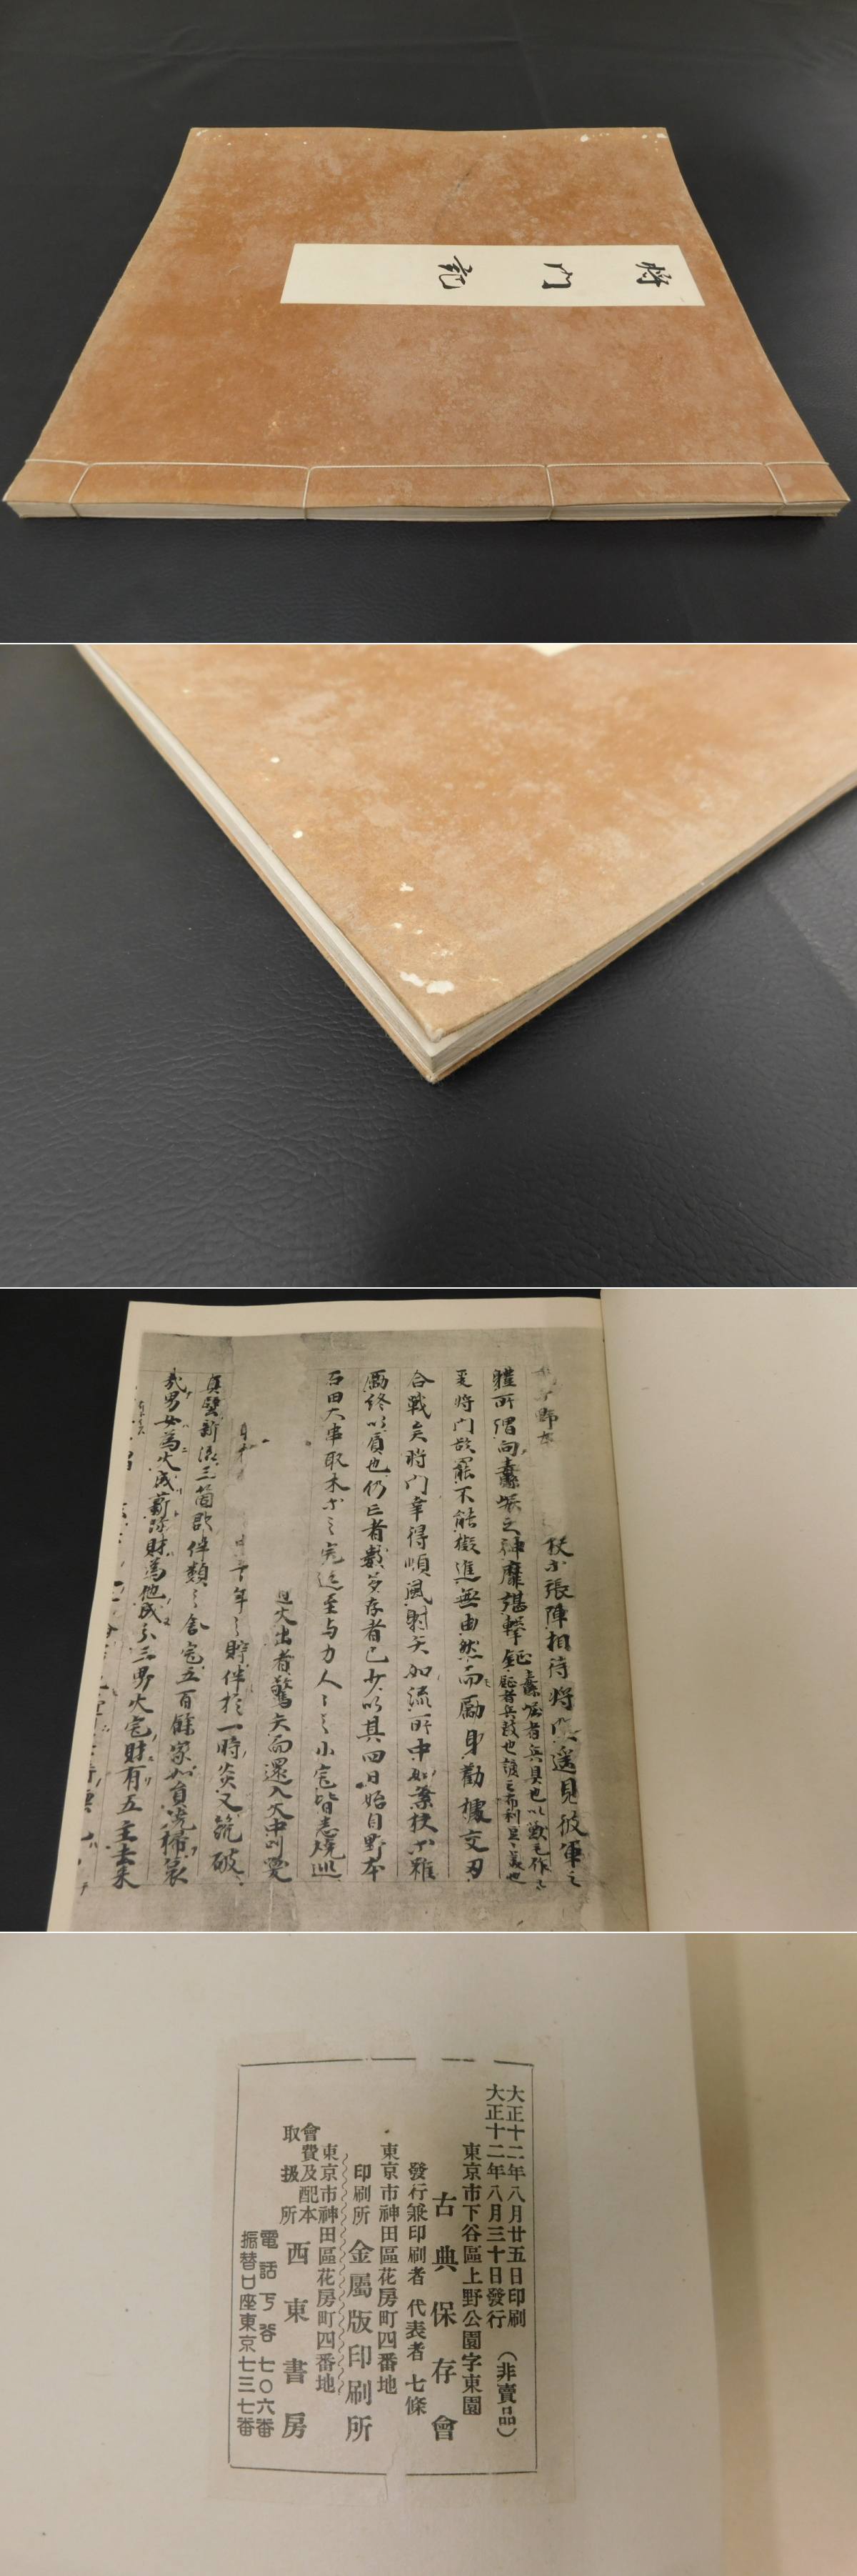 将門記
扶等張陣相待将門遥見彼軍之
体所謂向纛崛之神靡旗撃鉦
纛崛者兵具也以獣毛作之
鉦者兵鼓也諺云布利豆々美也
爰将門欲罷不能擬進無由然而勵身勸據交刃
合戦矣将門幸得順風射矢如流所中如案扶等雖
勵終以負也仍亡者數多存者已少以其四日始自野本
石田大串取木等之宅迄至与力人々之小宅皆悉焼巡
火出者驚矢而還入火中叫
年之貯伴於一時炎又筑波
真壁新治三箇郡伴類之舎宅五百餘家如員焼掃哀
哉男女為火成薪珎財為他成分三界火宅財有五主去来
大正十二年八月廿五日印刷
大正十二年八月三十日發行
(非賣品)
東京市下谷區上野公園字東園
古典保存會
發行兼印刷者 代表者 七條
東京市神田區花房町四番地
印刷所 金屬版印刷所
東京市神田區花房町四番地
會費及配本
取扱所 西東書房
電話下谷七〇六番
振替口座東京七三七番